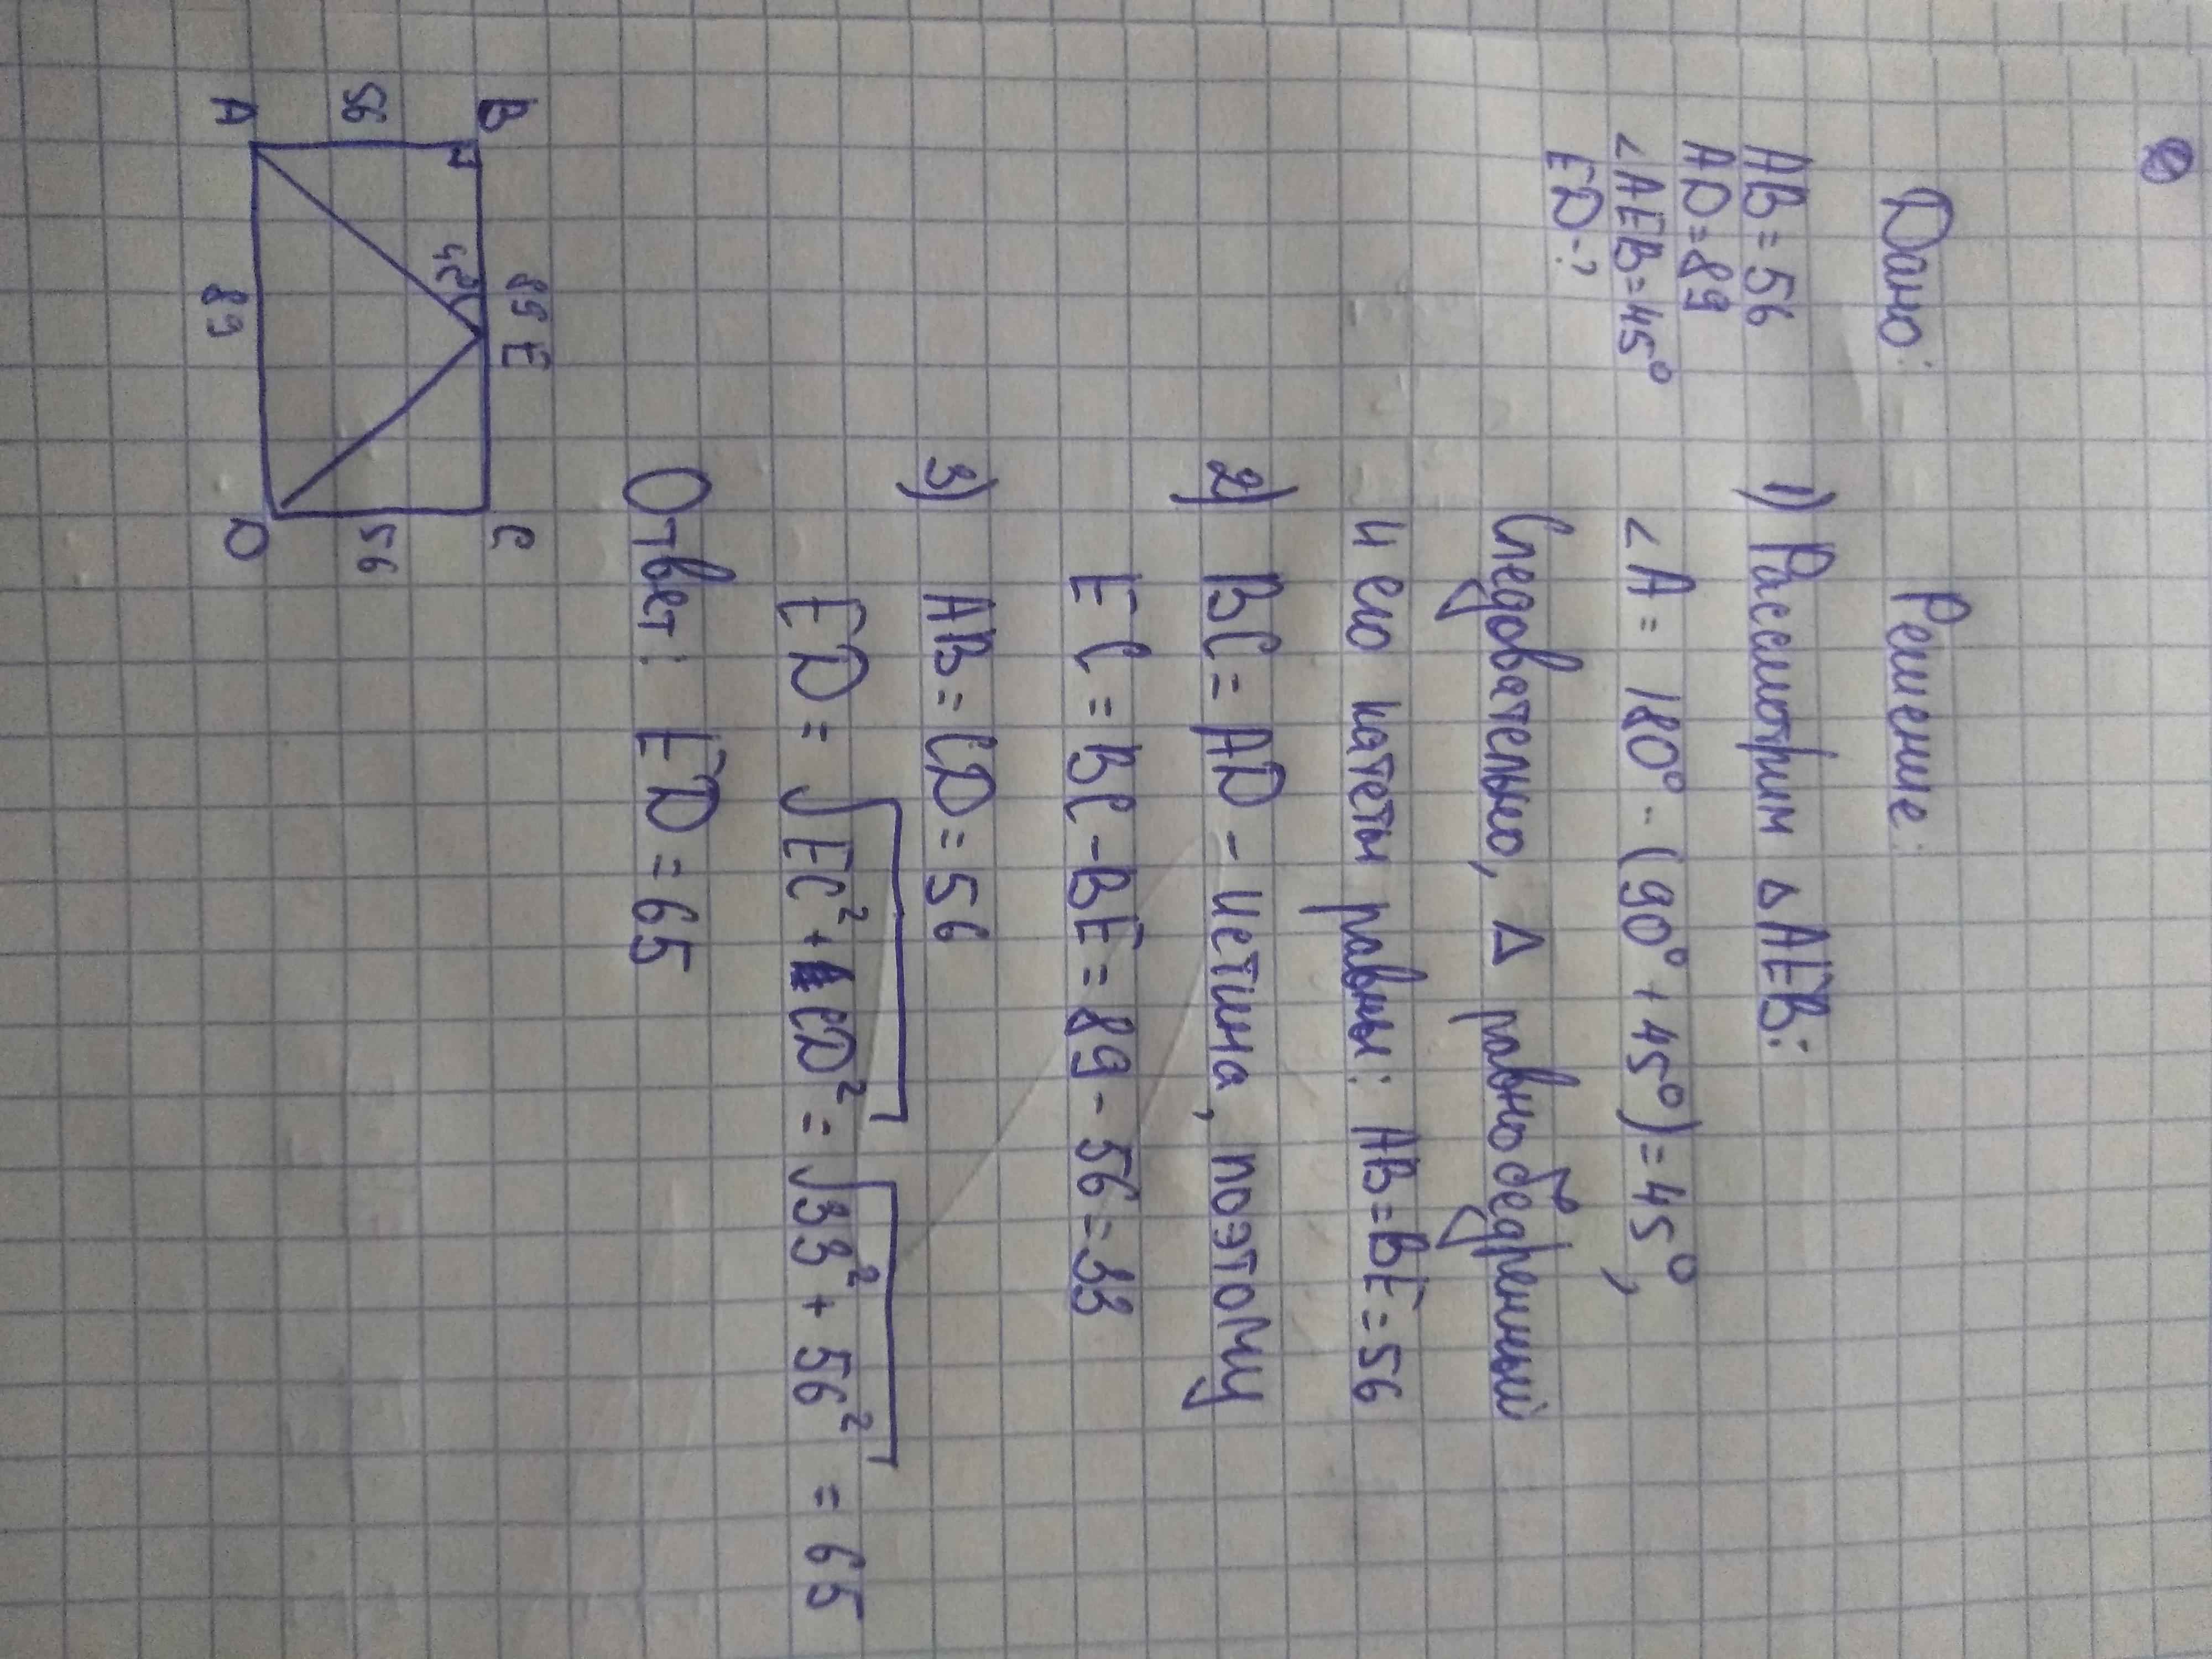 Дано:
AB = 56
AD = 89
∠AEB = 45°
ED - ?
Решение:
1) Рассмотрим ΔAEB:
∠A = 180° - (90° + 45°) = 45°,
Следовательно, Δ равнобедренный
и его катеты равны: AB = BE = 56
2) BC = AD - истина, поэтому
EC = BC - BE = 89 - 56 = 33
3) AB = CD = 56
ED = √EC² + CD² = √33² + 56² = 65
Ответ: ED = 65
B 89 E C
56 45° 56
A 89 D